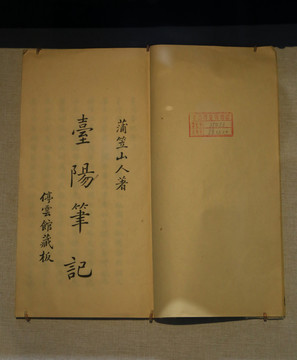 蒲笠山人著
臺陽筆記
停雲館藏板